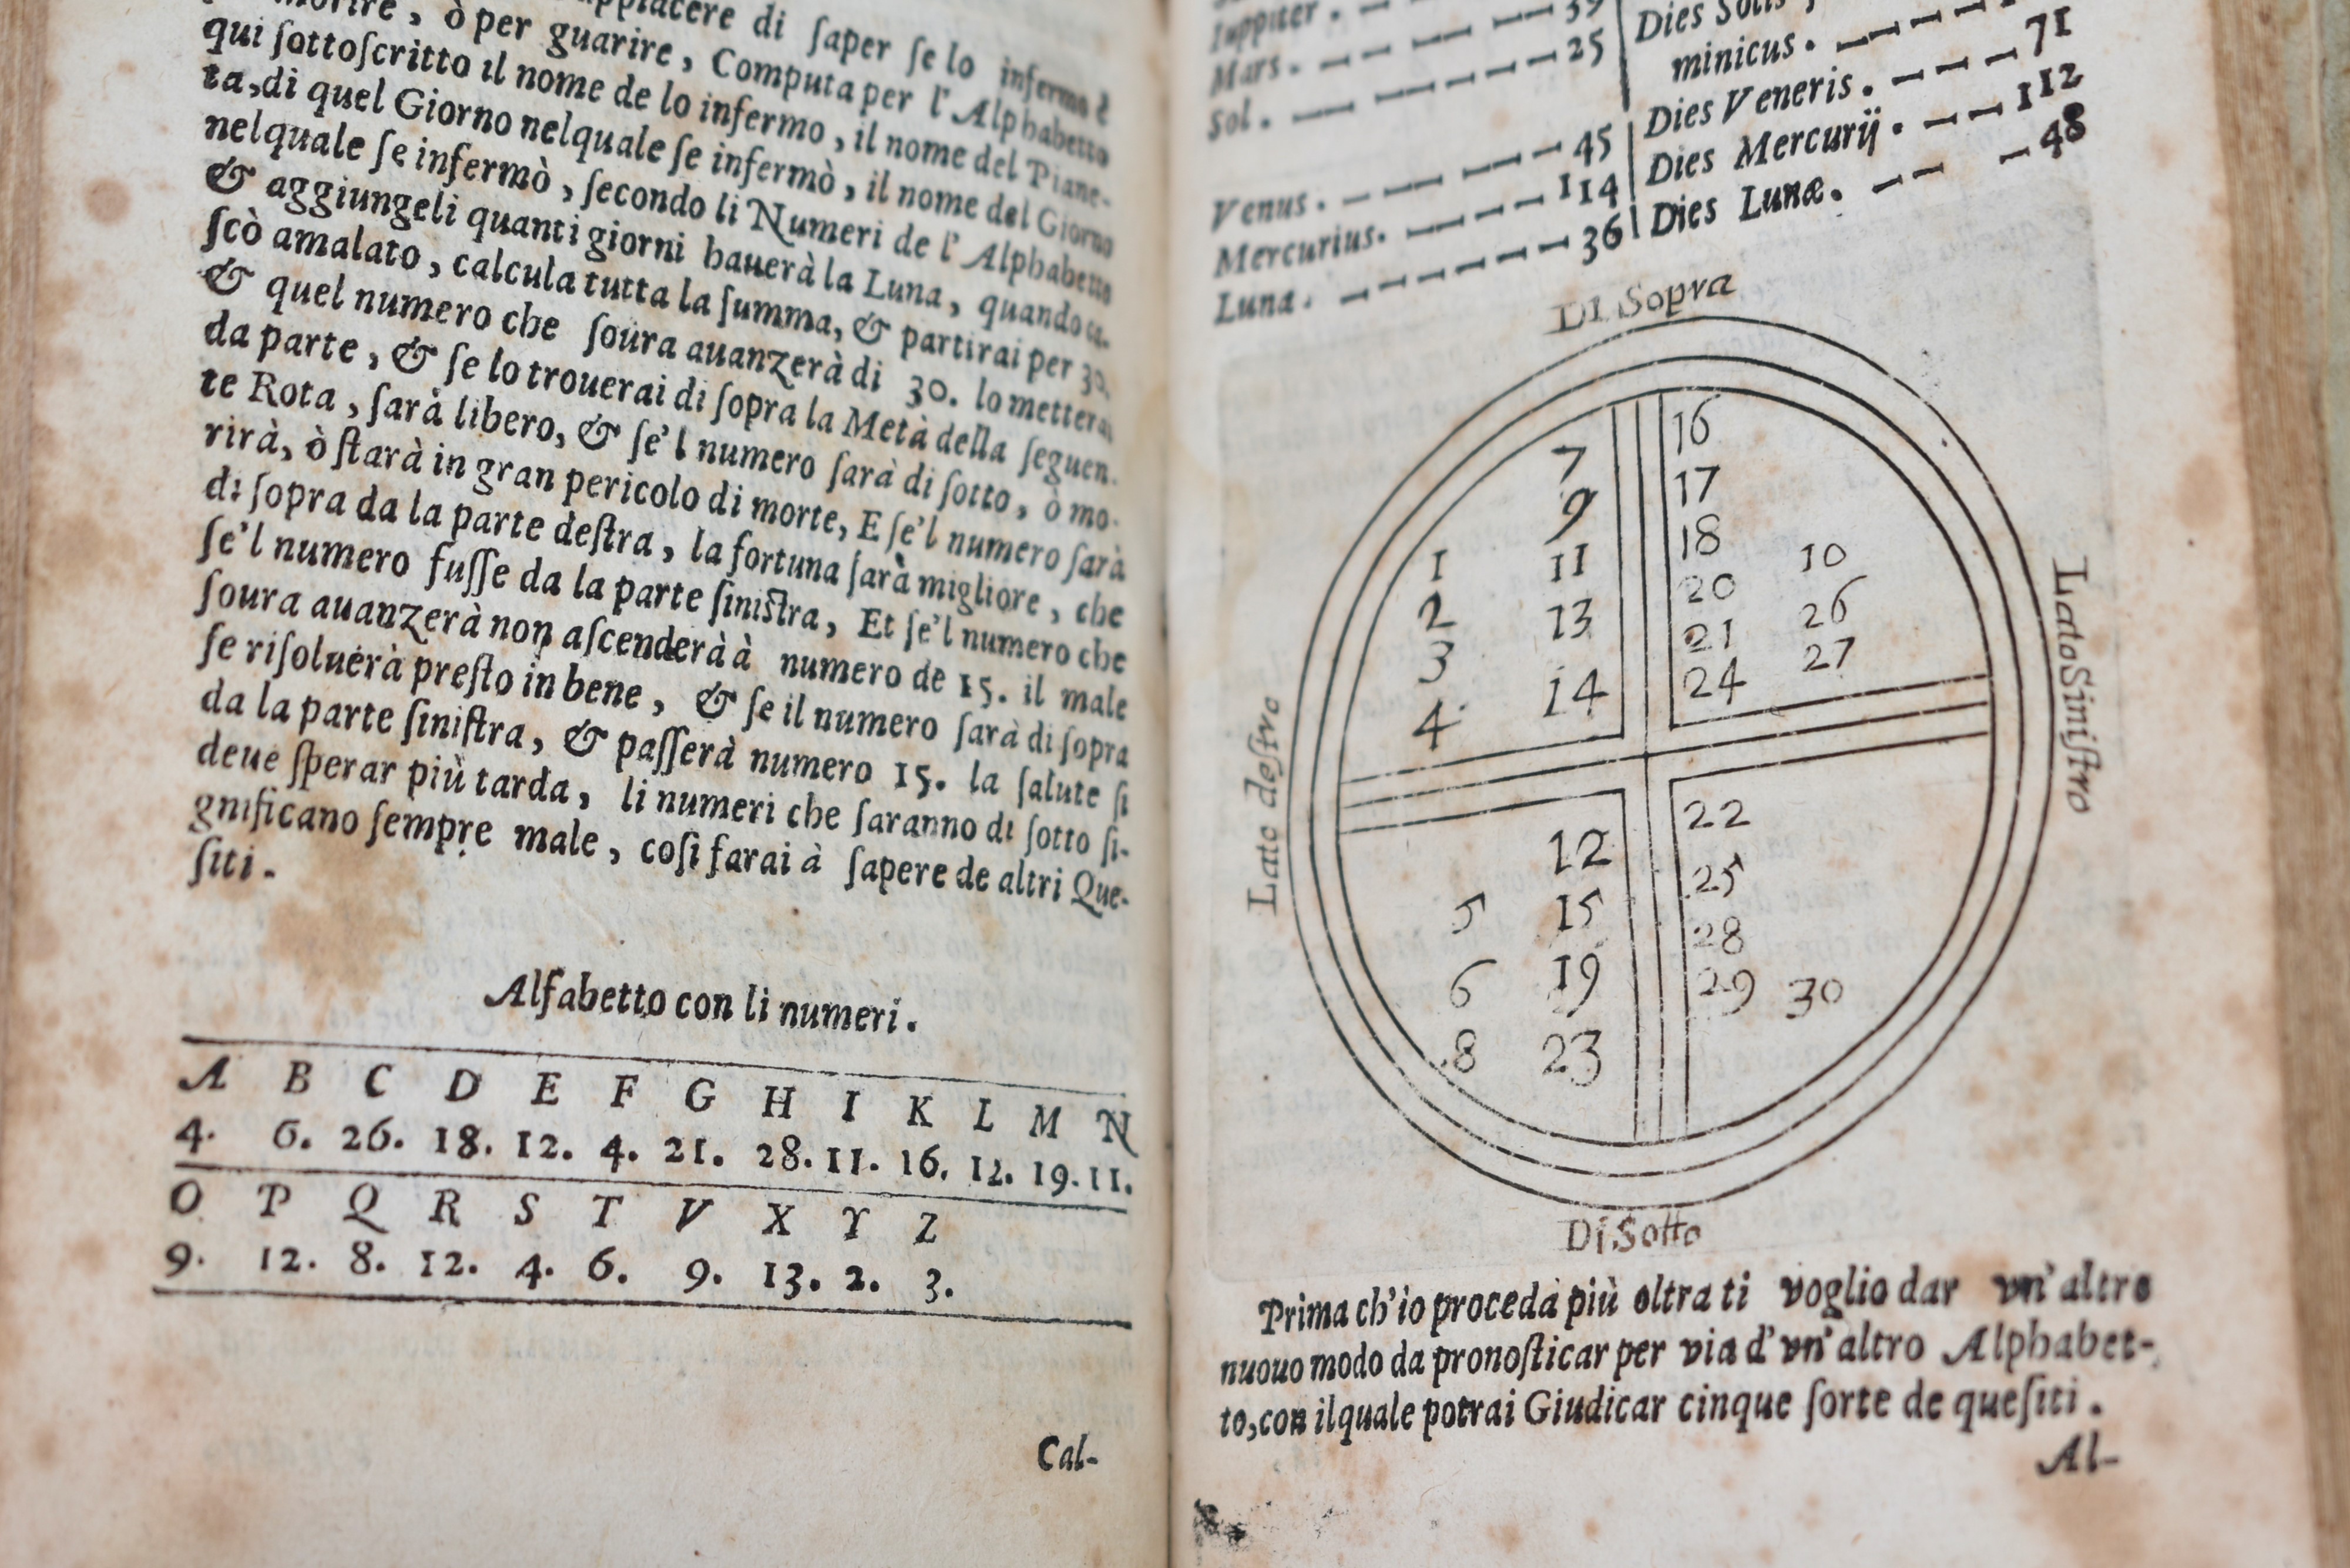 di ſaper ſe lo infermo è
ò per guarire, Computa per l'Alphabetto
qui ſottoſcritto il nome de lo infermo, il nome del Piane-
ta, di quel Giorno nelquale ſe infermò, il nome del Giorno
nelquale ſe infermò, ſecondo li Numeri de l'Alphabetto
& aggiungeli quanti giorni hauerà la Luna, quando ca-
ſcò amalato, calcula tutta la ſumma, & partirai per 30.
& quel numero che ſoura auanzerà di 30. lo metterai
da parte, & ſe lo trouerai di ſopra la Metà della ſeguen-
te Rota, ſarà libero, & ſe'l numero ſarà di ſotto, ò mo-
rirà, ò ſtarà in gran pericolo di morte, E ſe'l numero ſarà
di ſopra da la parte deſtra, la fortuna ſarà migliore, che
ſe'l numero fuſſe da la parte ſiniſtra, Et ſe'l numero che
ſoura auanzerà non aſcenderà à numero de 15. il male
ſe riſoluerà preſto in bene, & ſe il numero ſarà di ſopra
da la parte ſiniſtra, & paſſerà numero 15. la ſalute ſi
deue ſperar più tarda, li numeri che ſaranno di ſotto ſi-
gnificano ſempre male, coſi farai à ſapere de altri Que-
ſiti.
Alfabetto con li numeri.
A B C D E F G H I K L M N
4. 6. 26. 18. 12. 4. 21. 28. 11. 16. 12. 19. 11.
O P Q R S T V X Y Z
9. 12. 8. 12. 4. 6. 9. 13. 2. 3.
Cal-
Iuppiter.
Mars. 39
Sol. 25
Venus. 45
Mercurius. 114
Luna. 36
Dies Solis
minicus.
Dies Veneris. 71
Dies Mercurij. 112
Dies Lunæ. 48
Di Sopra
Lato deſtro
Lato Siniſtro
7
9
1 11
2 13
3
4 14
16
17
18 10
20 26
21 27
24
12
5 15
6 19
8 23
22
25
28
29 30
Di Sotto
Prima ch'io proceda più oltra ti voglio dar vn'altro
nuouo modo da pronoſticar per via d'vn'altro Alphabet-
to, con ilquale potrai Giudicar cinque ſorte de queſiti.
Al-